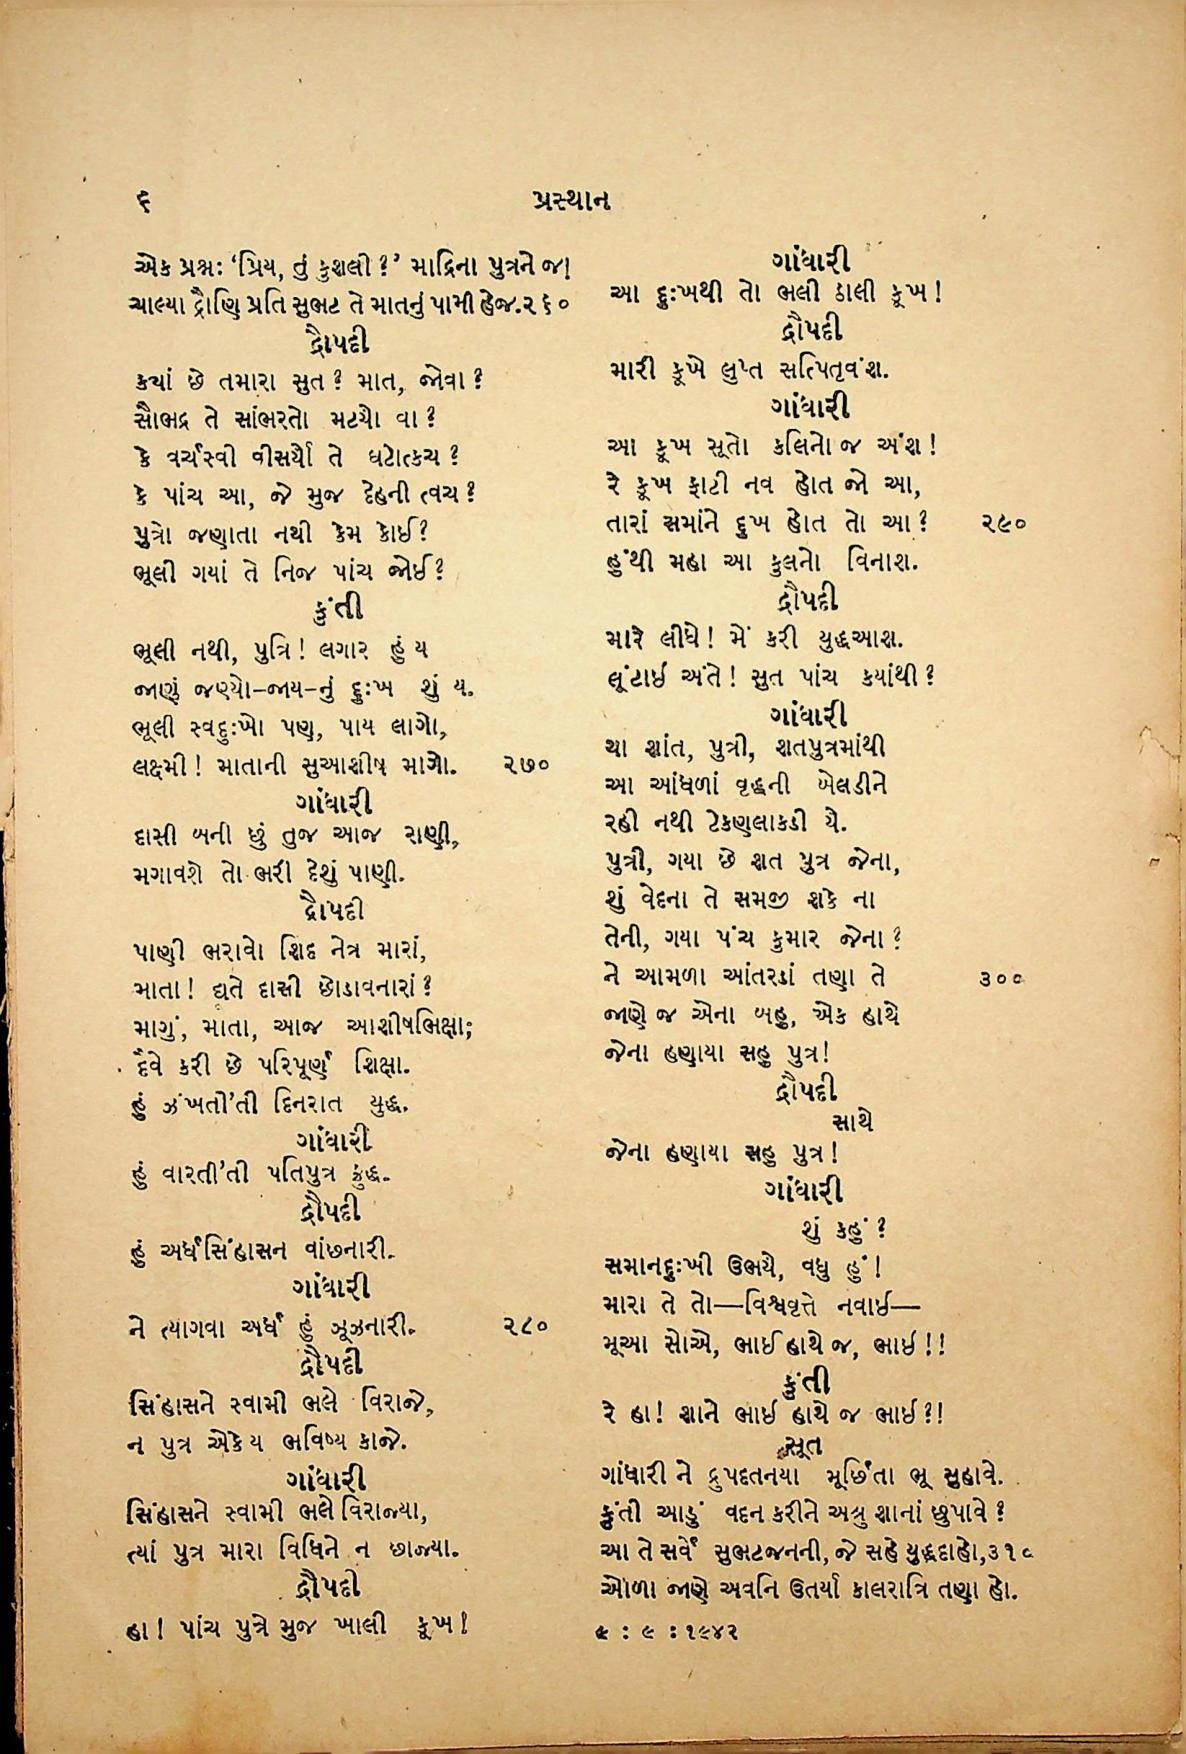 ૬
પ્રસ્થાન
એક પ્રશ્નઃ ‘પ્રિય, તું કુશલી?’ માદ્રિના પુત્રને જ!
ચાલ્યા દ્રૌણિ પ્રતિ સુભટ તે માતનું પામી હેજ.૨૬૦
દ્રૌપદી
ક્યાં છે તમારા સુત? માત, જોવા?
સૌભદ્ર તે સાંભરતો મટ્યો વા?
કે વર્ચસ્વી વીસર્યો તે ઘટોત્કચ?
કે પાંચ આ, જે મુજ દેહની ત્વચ?
પુત્રો જણાતા નથી કેમ કોઈ?
ભૂલી ગયાં તે નિજ પાંચ જોઈ?
કુંતી
ભૂલી નથી, પુત્રિ! લગાર હું ય
જાણું જણ્યો–જાય–નું દુઃખ શું ય.
ભૂલી સ્વદુઃખો પણ, પાય લાગો,
લક્ષ્મી! માતાની સુઆશીષ માગો. ૨૭૦
ગાંધારી
દાસી બની છું તુજ આજ રાણી,
મગાવશે તો ભરી દેશું પાણી.
દ્રૌપદી
પાણી ભરાવો શિદ નેત્ર મારાં,
માતા! દ્યતે દાસી છોડાવનારાં?
માગું, માતા, આજ આશીષભિક્ષા;
દૈવે કરી છે પરિપૂર્ણ શિક્ષા.
હું ઝંખતી’તી દિનરાત યુદ્ધ.
ગાંધારી
હું વારતી’તી પતિપુત્ર ક્રુદ્ધ.
દ્રૌપદી
હું અર્ધસિંહાસન વાંછનારી.
ગાંધારી
ને ત્યાગવા અર્ધ હું ઝૂઝનારી. ૨૮૦
દ્રૌપદી
સિંહાસને સ્વામી ભલે વિરાજે,
ન પુત્ર એકેય ભવિષ્ય કાજે.
ગાંધારી
સિંહાસને સ્વામી ભલે વિરાજ્યા,
ત્યાં પુત્ર મારા વિધિને ન છાજ્યા.
દ્રૌપદી
હા! પાંચ પુત્રે મુજ ખાલી કૂખ!
ગાંધારી
આ દુઃખથી તો ભલી ઠાલી કૂખ!
દ્રૌપદી
મારી કૂખે લુપ્ત સત્પિતૃવંશ.
ગાંધારી
આ કૂખ સૂતો કલિનો જ અંશ!
રે કૂખ ફાટી નવ હોત જો આ,
તારાં સમાંને દુખ હોત તો આ? ૨૯૦
હુંથી મહા આ કુલનો વિનાશ.
દ્રૌપદી
મારે લીધે! મેં કરી યુદ્ધઆશ.
લૂંટાઈ અંતે! સુત પાંચ ક્યાંથી?
ગાંધારી
થા શાંત, પુત્રી, શતપુત્રમાંથી
આ આંધળાં વૃદ્ધની બેલડીને
રહી નથી ટેકણલાકડી યે.
પુત્રી, ગયા છે શત પુત્ર જેના,
શું વેદના તે સમજી શકે ના
તેની, ગયા પંચ કુમાર જેના?
ને આમળા આંતરડાં તણા તે ૩૦૦
જાણે જ એના બહુ, એક હાથે
જેના હણાયા સહુ પુત્ર!
દ્રૌપદી
સાથે
જેના હણાયા સહુ પુત્ર!
ગાંધારી
શું કહું?
સમાનદુઃખી ઉભયે, વધુ હું!
મારા તે તો—વિશ્વવૃત્તે નવાઈ—
મૂઆ સોએ, ભાઈ હાથે જ, ભાઈ!!
કુંતી
રે હા! શાને ભાઈ હાથે જ ભાઈ?!
સૂત
ગાંધારી ને દ્રુપદતનયા મૂર્છિતા ભૂ સુહાવે.
કુંતી આડું વદન કરીને અશ્રુ શાનાં છુપાવે?
આ તે સર્વે સુભટજનની, જે સહે યુદ્ધદાહો,૩૧૦
ઓળા જાણે અવનિ ઉતર્યા કાલરાત્રિ તણા હો.
: ૯ : ૧૯૪૨